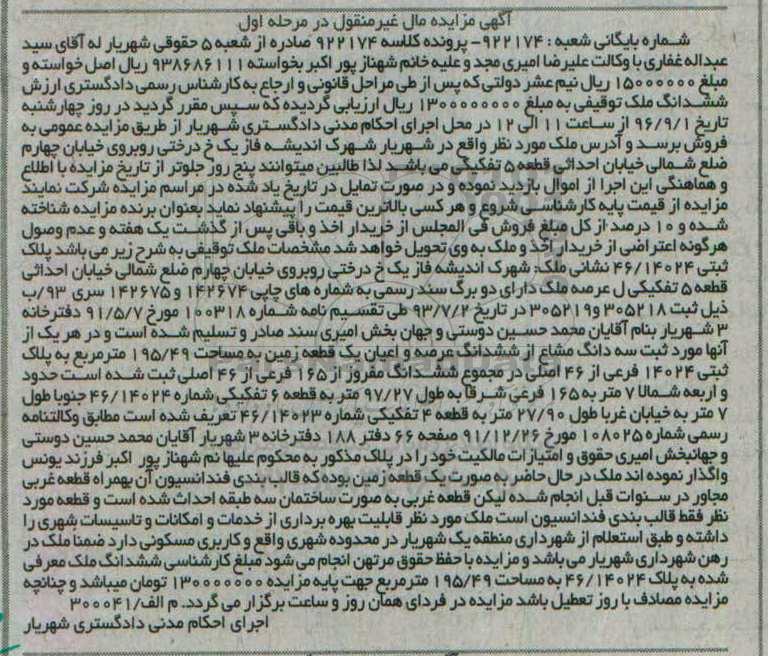 آگهی مزایده مال غیرمنقول در مرحله اول
شماره بایگانی شعبه : ۹۲۲۱۷۴- پرونده کلاسه ۹۲۲۱۷۴ صادره از شعبه ۵ حقوقی شهریار له آقای سید
عبداله غفاری با وکالت علیرضا امیری مجد و علیه خانم شهناز پور اکبر بخواسته ۹۳۸۶۸۶۱۱۱ ریال اصل خواسته و
مبلغ ۱۵۰۰۰۰۰۰ ریال نیم عشر دولتی که پس از طی مراحل قانونی و ارجاع به کارشناس رسمی دادگستری ارزش
ششدانگ ملک توقیفی به مبلغ ۱۳۰۰۰۰۰۰۰۰ ریال ارزیابی گردیده که سپس مقرر گردید در روز چهارشنبه
تاریخ ۹۶/۹/۱ از ساعت ۱۱ الی ۱۲ در محل اجرای احکام مدنی دادگستری شهریار از طریق مزایده عمومی به
فروش برسد و آدرس ملک مورد نظر واقع در شهریار شهرک اندیشه فاز یک خ درختی روبروی خیابان چهارم
ضلع شمالی خیابان احداثی قطعه ۵ تفکیکی می باشد لذا طالبین میتوانند پنج روز جلوتر از تاریخ مزایده با اطلاع
و هماهنگی این اجرا از اموال بازدید نموده و در صورت تمایل در تاریخ یاد شده در مراسم مزایده شرکت نمایند
مزایده از قیمت پایه کارشناسی شروع و هر کسی بالاترین قیمت را پیشنهاد نماید بعنوان برنده مزایده شناخته
شده و ۱۰ درصد از کل مبلغ فروش فی المجلس از خریدار اخذ و باقی پس از گذشت یک هفته و عدم وصول
هرگونه اعتراضی از خریدار اخذ و ملک به وی تحویل خواهد شد مشخصات ملک توقیفی به شرح زیر می باشد پلاک
ثبتی ۴۶/۱۴۰۲۴ نشانی ملک: شهرک اندیشه فاز یک خ درختی روبروی خیابان چهارم ضلع شمالی خیابان احداثی
قطعه ۵ تفکیکی ل عرصه ملک دارای دو برگ سند رسمی به شماره های چاپی ۱۴۲۶۷۴ و ۱۴۲۶۷۵ سری ۹۳/ب
ذیل ثبت ۳۰۵۲۱۸ و ۳۰۵۲۱۹ در تاریخ ۹۳/۷/۲ طی تقسیم نامه شماره ۱۰۰۳۱۸ مورخ ۹۱/۵/۷ دفترخانه
۳ شهریار بنام آقایان محمد حسین دوستی و جهان بخش امیری سند صادر و تسلیم شده است و در هر یک از
آنها مورد ثبت سه دانگ مشاع از ششدانگ عرصه و اعیان یک قطعه زمین به مساحت ۱۹۵/۴۹ مترمربع به پلاک
ثبتی ۱۴۰۲۴ فرعی از ۴۶ اصلی در مجموع ششدانگ مفروز از ۱۶۵ فرعی از ۴۶ اصلی ثبت شده است حدود
و اربعه شمالا ۷ متر به ۱۶۵ فرعی شرقا به طول ۹۷/۲۷ متر به قطعه ۶ تفکیکی شماره ۴۶/۱۴۰۲۴ جنوبا طول
۷ متر به خیابان غربا طول ۲۷/۹۰ متر به قطعه ۴ تفکیکی شماره ۴۶/۱۴۰۲۳ تعریف شده است مطابق وکالتنامه
رسمی شماره ۱۰۸۰۲۵ مورخ ۹۱/۱۲/۲۶ صفحه ۶۶ دفتر ۱۸۸ دفترخانه ۳ شهریار آقایان محمد حسین دوستی
و جهانبخش امیری حقوق و امتیازات مالکیت خود را در پلاک مذکور به محکوم علیها نم شهناز پور اکبر فرزند یونس
واگذار نموده اند ملک در حال حاضر به صورت یک قطعه زمین بوده که قالب بندی فندانسیون آن بهمراه قطعه غربی
مجاور در سنوات قبل انجام شده لیکن قطعه غربی به صورت ساختمان سه طبقه احداث شده است و قطعه مورد
نظر فقط قالب بندی فندانسیون است ملک مورد نظر قابلیت بهره برداری از خدمات و امکانات و تاسیسات شهری را
داشته و طبق استعلام از شهرداری منطقه یک شهریار در محدوده شهری واقع و کاربری مسکونی دارد ضمنا ملک در
رهن شهرداری شهریار می باشد و مزایده با حفظ حقوق مرتهن انجام می شود مبلغ کارشناسی ششدانگ ملک معرفی
شده به پلاک ۴۶/۱۴۰۲۴ به مساحت ۱۹۵/۴۹ مترمربع جهت پایه مزایده ۱۳۰۰۰۰۰۰۰ تومان میباشد و چنانچه
مزایده مصادف با روز تعطیل باشد مزایده در فردای همان روز و ساعت برگزار می گردد. م الف/۳۰۰۰۴۱
اجرای احکام مدنی دادگستری شهریار